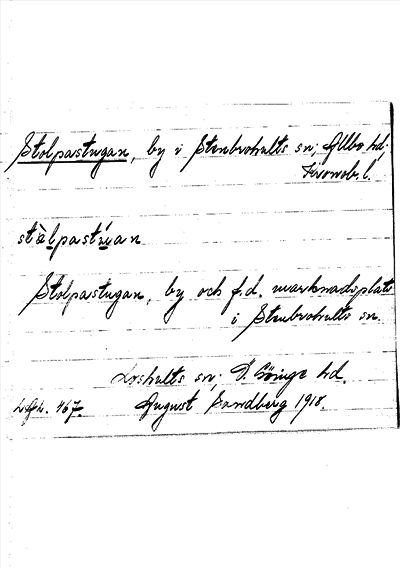 Stolpastugan, by i Stenbrohults sn; Allbo hd.
Kronob. l.
stålpastuan
Stolpastugan, by och f.d. marknadsplats
i Stenbrohults sn.
Loshults sn; Ö. Göinge hd.
August Sandberg 1918.